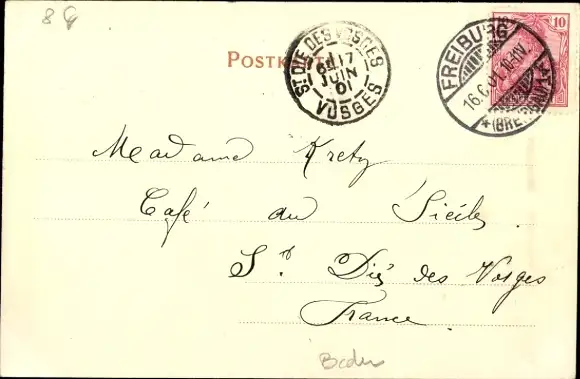 8
POSTK
ST DIE DES VOSGES
17
JUIN
01
VOSGES
FREIBURG
16.6.01.
(BREISGAU)
10
Madame Krety
Café du Siècle
St. Dié des Vosges
France
Baden